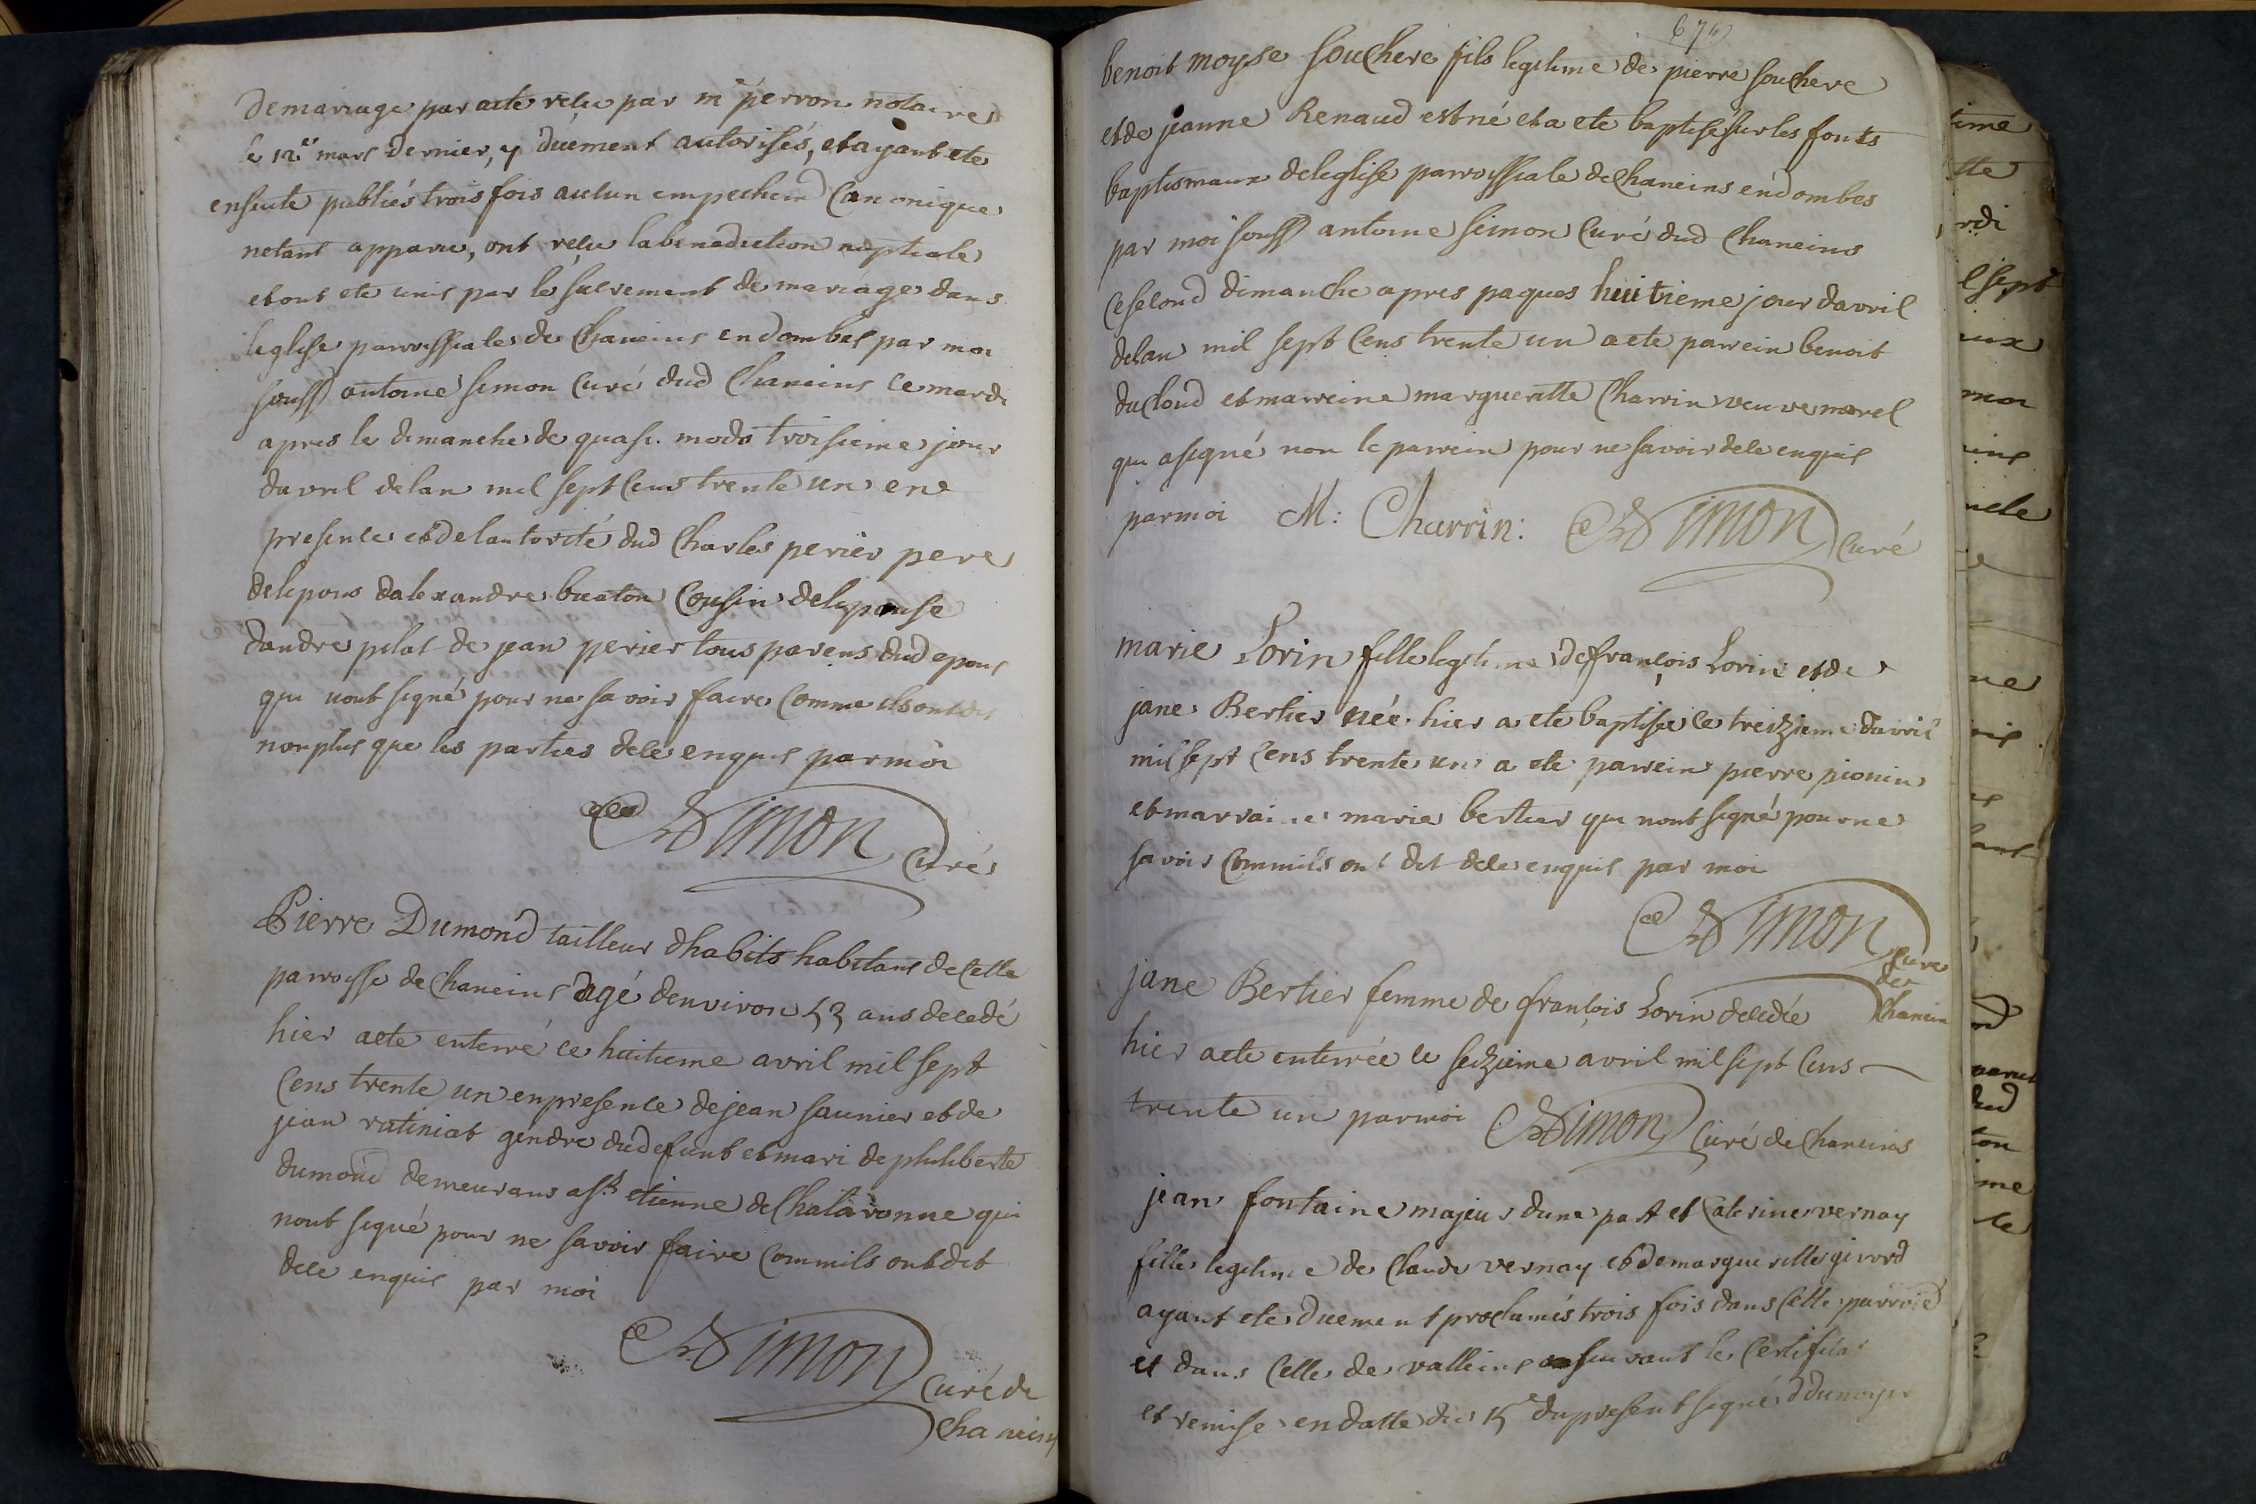 demariage par acte reçu par me perron notaire
le 12er mars dernier, y duement autorisés, et ayant ete
ensuite publiés trois fois aucun empechemt canonique
netant apparu, ont reçu la benediction nuptiale
et ont ete unis par le sacrement de mariage dans
leglise parroissiale de Chaneins en dombes par moi
soussé antoine simon Curé dud Chaneins ce mardi
apres le dimanche de quasi modo troisieme jour
davril delan mil sept cens trente un en
presence et delautorité dud Charles perier pere
delepoux dalexandre buaton Cousin delepouse
dandre pilat de jean perier tous parens dud epoux
qui nont signé pour ne savoir faire Comme ils ont dit
non plus que les parties de ce enquis par moi
Simon Curé
Pierre Dumond tailleur dhabits habitant de Cette
parroisse de Chaneins agé denviron 53 ans decedé
hier aete enterré ce huitieme avril mil sept
cens trente un enpresence de jean saunier et de
jean ratiniat gendre dudefunt et mari de philiberte
dumond demeurans a st etienne de Chalaronne qui
nont signé pour ne savoir faire Commils ont dit
dece enquis par moi
Simon
Curé de
Chaneins
67
benoit moyse souchere fils legitime de pierre souchere
et de jeanne Renaud est né et a ete baptisé sur les fonts
baptismaux deleglise parroissiale de Chaneins en dombes
par moi soussé antoine simon Curé dud Chaneins
ce second dimanche apres paques huitieme jour davril
delan mil sept cens trente un a ete parrein benoit
ducloud et marreine margueritte Charrin veuve morel
qui a signé non le parrein pour ne savoir de ce enquis
par moi M: Charrin: Simon Curé
marie Lorin fille legitime de françois Lorin et de
jane Bertier née hier a ete baptisée ce treizieme davril
mil sept cens trente un a ete parrein pierre pionin
et marraine marie bertier qui nont signé pour ne
savoir Commils ont dit dece enquis par moi
Simon curé
de
Chanein
jane Bertier femme de françois Lorin decedée
hier aete enterrée le seizieme avril mil sept cens
trente un par moi Simon Curé de Chaneins
jean fontaine majeur dune part et Caterine vernay
fille legitime de Claude vernay et de margueritte girord
ayant ete duement proclamés trois fois dans Cette parroise
et dans Celle de valleins suivant le Certificat
et remise en datte du 15e dupresent signé dumoyer